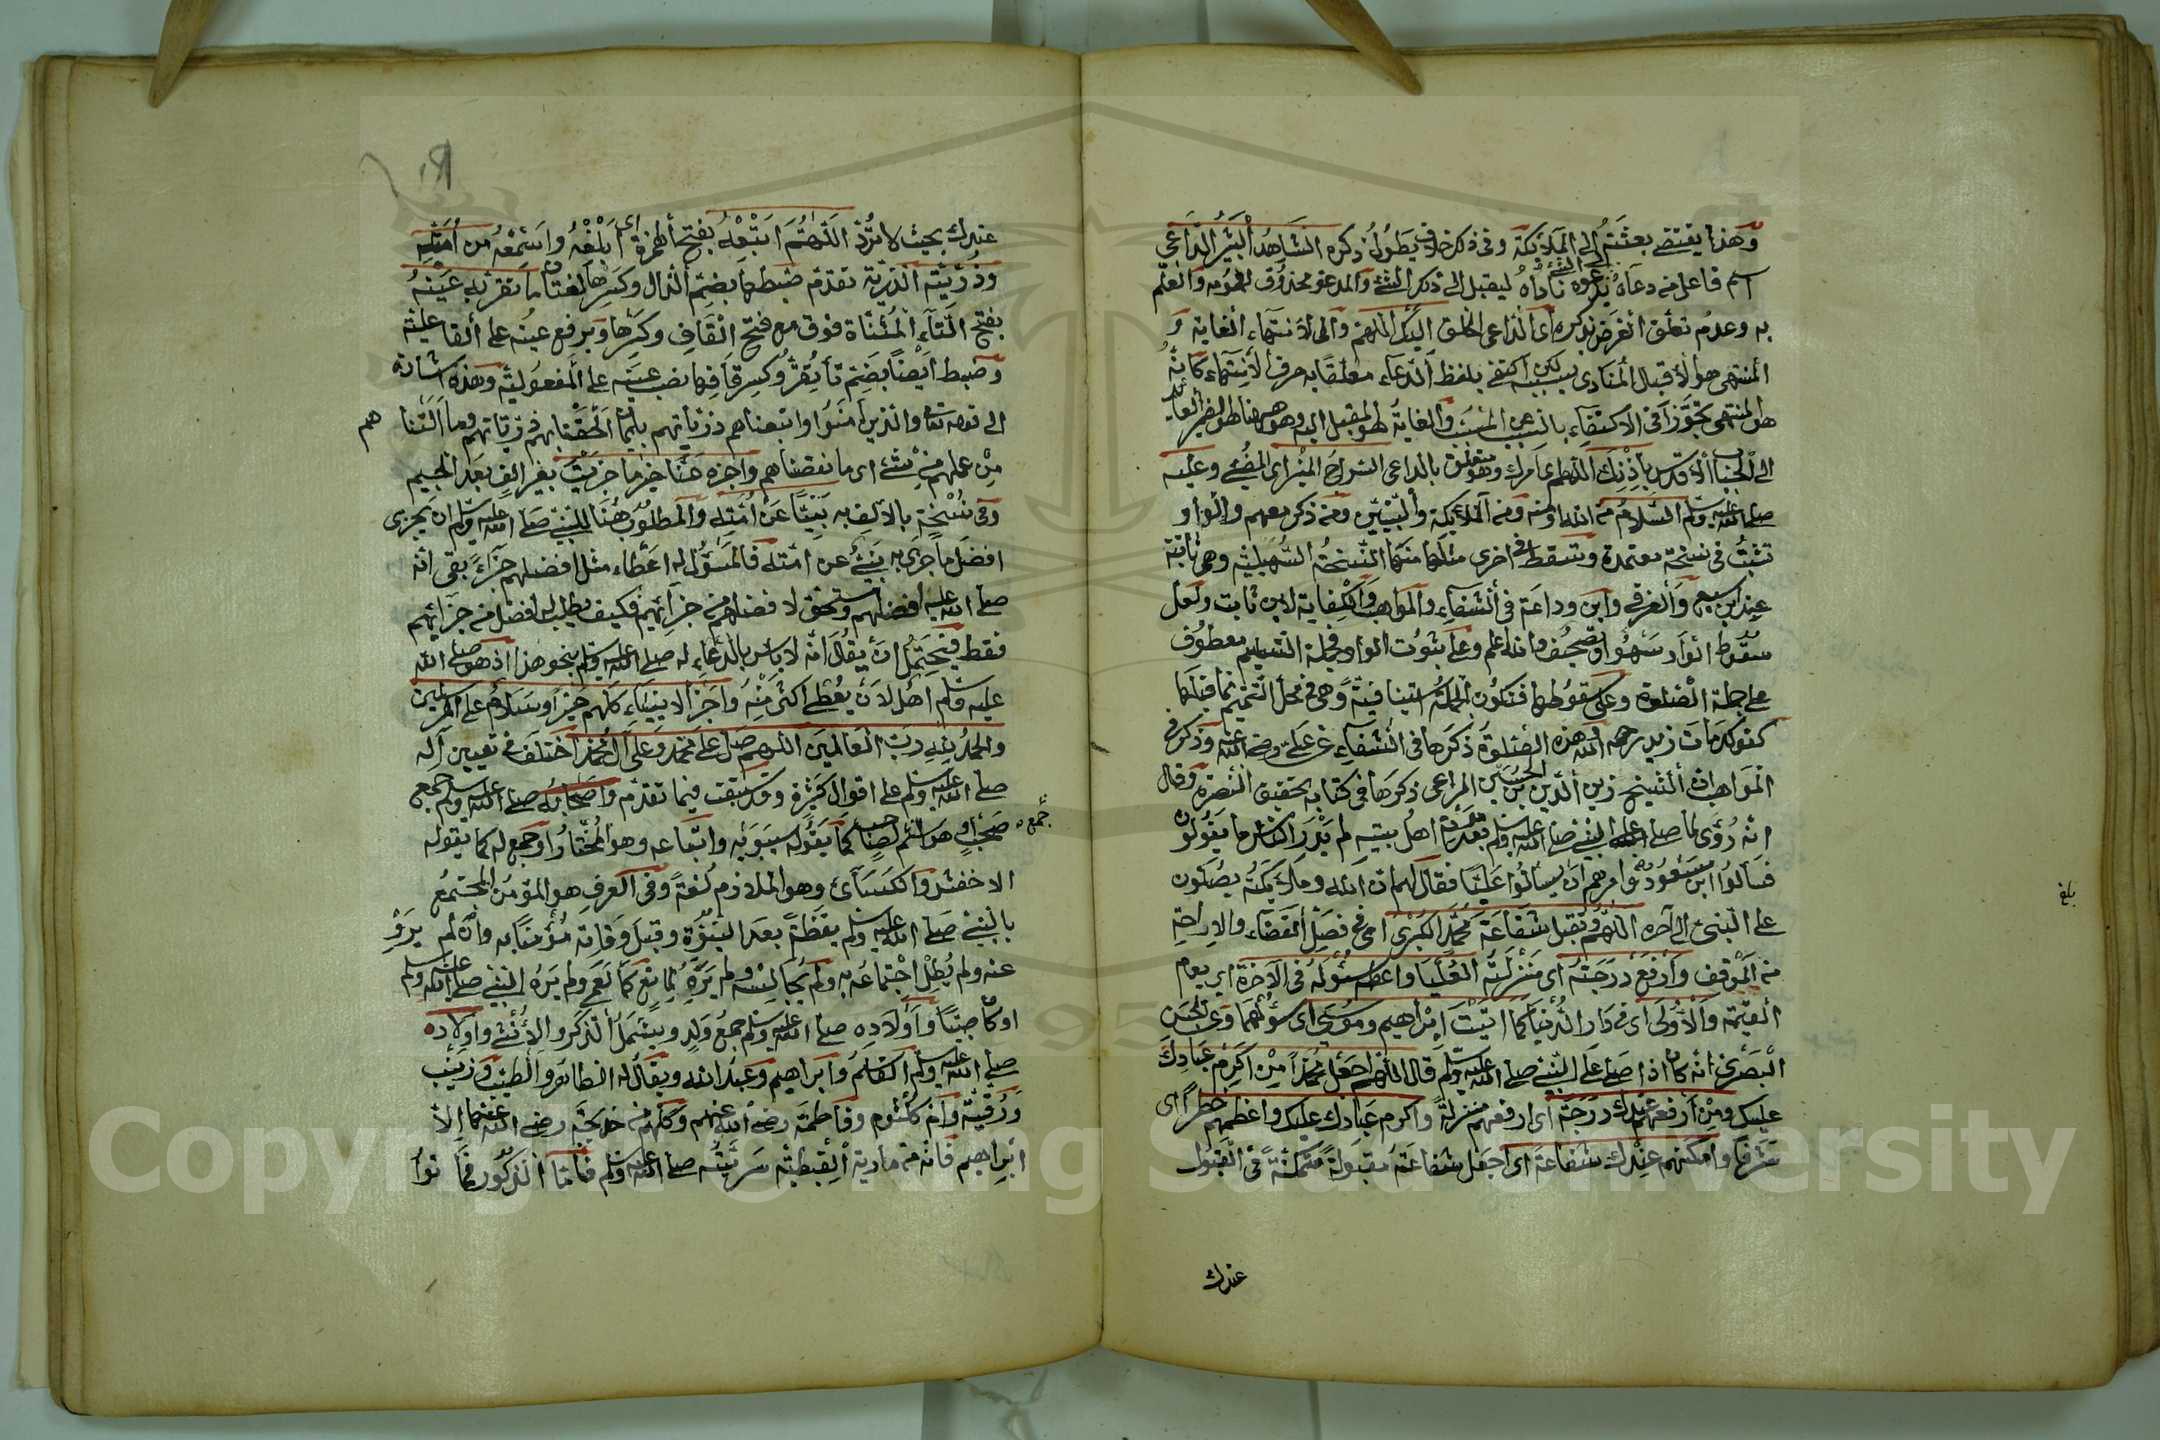 وهذا يقتضي بعثته الى الملائكة وفي ذلك خلاف يطول ذكره الشاهد البشير الداعي
اسم فاعل من دعاه يدعوه ناداه ليقبل الى ذكر الشئ والمدعو محذوف للعموم والعلم
به وعدم تعلق الغرض بذكره اي الداعي الخلق اليك اللهم والى لانتهاء الغاية و
المنتهى هو الاقبال المنادى بسببه لكن اكتفى بلفظ الدعاء معلقا به حرف الانتهاء كانه
هو المنتهي تجوزا في الاكتفاء بالسبب عن المسبب والغاية هو المقبل اليه وهو هنا
الى الجناب الاقدس باذنك اللهم اي امرك وهو متعلق بالداعي السراج المنير اي المضئ وعليه
صلى الله عليه وسلم السلام من الله او منه ومن الملائكة والنبيين ومن ذكر معهم والواو
تثبت في نسخة معتمدة وتسقط في اخرى مثلها منها النسخة السهلية وهي ثابتة
عند ابن سبع والعزفي وابن وداعة في الشفاء والمواهب والكفاية لابن ثابت ولعل
سقوط الواو سهو او تصحيف والله اعلم وعلى ثبوت الواو فجملة التسليم معطوف
على جملة الصلاة وعلى سقوطها فتكون الجملة استينافية وهي في محل التتميم لما قبلها
كقولك مات زيد رحمه الله هذه الصلوة ذكرها في الشفاء عن علي رضي الله عنه وذكر في
المواهب ان الشيخ زين الدين بن الحسين المراغي ذكرها في كتابه تحقيق النصرة وقال
انه روي لما صلى على النبي صلى الله عليه وسلم بعد موته اهل بيته لم يدر الناس ما يقولون
فسالوا ابن مسعود وامرهم ان يسالوا عليا فقال لهم ان الله وملائكته يصلون
على النبي الى آخره اللهم وتقبل شفاعة محمد الكبرى اي في فصل القضاء والاراحة
من الموقف وارفع درجته اي منزلته العليا واعطه سؤله في الآخرة اي يوم
القيمة والاولى اي في دار الدنيا كما اتيت ابراهيم وموسى اي سؤلهما وعن الحسن
البصري انه كان اذا صلى على النبي صلى الله عليه وسلم قال اللهم اجعل محمدا من اكرم عبادك
عليك ومن ارفعهم عندك درجة اي ارفعهم منزلة واكرم عبادك عليك واعظمهم خطرا اي
شرفا وامكنهم عندك شفاعة اي اجعل شفاعته مقبولة متمكنة في القبول
عندك
بلغ
عندك بحيث لا ترد اللهم اتبعه بفتح الهمزة اي ابلغه واسمعه من امته
وذريته الذرية تقدم ضبطها بضم الذال وكسرها لغتان ما تقر به عينه
بفتح التاء المثناة فوق مع فتح القاف وكسرها وبرفع عينه على الفاعلية
وضبط ايضا بضم تا تقر وكسر قافها ونصب عينه على المفعولية وهذه اشارة
الى قوله تعالى والذين امنوا واتبعناهم ذرياتهم بايمان الحقنا بهم ذرياتهم وما التنا
هم
من عملهم من شئ اي ما نقصناهم واجزه عنا خير ما جزيت بغير الف بعد الجيم
وفي نسخة بالالف به نبيا عن امته والمطلوب هنا للنبي صلى الله عليه وسلم ان يجزى
افضل ما جزي به نبي عن امته فالمسؤل له اعطاء مثل افضلهم جزاء بقي انه
صلى الله عليه افضلهم ومستحق لافضل من جزائهم فكيف يطلب له افضل من جزائهم
فقط فيحتمل ان يقال انه لا باس بالدعاء له صلى الله عليه وسلم بنحو هذا اذ هو صلى الله
عليه وسلم اهل لان يعطى اكثر منه واجز الانبياء كلهم خيرا وسلام على المرسلين
والحمد لله رب العالمين اللهم صل على محمد وعلى آل محمد اختلف في تعيين آله
صلى الله عليه وسلم على اقوال كثيرة وقد سبقت فيما تقدم واصحابه صلى الله عليه وسلم جمع
صحب وهو اسم جمع لصاحب كما يقوله سيبويه واتباعه وهو المختار او جمع له كما يقوله
جمع
الاخفش والكسائي وهو الملازم لغة وفي العرف هو المؤمن المجتمع
بالنبي صلى الله عليه وسلم يقظة بعد النبوة وقبل وفاته مؤمنا به وان لم يرو
عنه ولم يطل اجتماعه به ولم يجالسه ولم يره لمانع كالعمى ولم يره النبي صلى الله عليه وسلم
او كان صبيا واولاده صلى الله عليه وسلم جمع ولد ويشمل الذكر والانثى واولاده
صلى الله عليه وسلم القاسم وابراهيم وعبد الله ويقال له الطاهر والطيب وزينب
ورقية وام كلثوم وفاطمة رضي الله عنهم وكلهم من خديجة رضي الله عنها الا
ابراهيم فانه من مارية القبطية سريته صلى الله عليه وسلم فاما الذكور فماتوا
Copyright © King Saud University